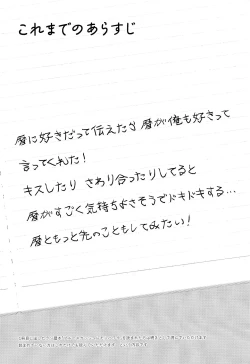 これまでのあらすじ
暦に好きだって伝えたら 暦が俺も好きって
言ってくれた!
キスしたり さわり合ったりしてると
暦がすごく気持ちよさそうでドキドキする…
暦ともっと先のこともしてみたい!